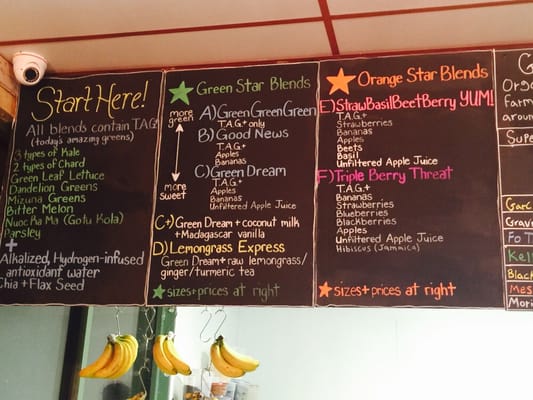 Start Here!
All blends contain T.A.G.
(today's amazing greens)
3 types of Kale
2 types of Chard
Green Leaf Lettuce
Dandelion Greens
Mizuna Greens
Bitter Melon
Nuoc Rau Ma (Gotu Kola)
Parsley
+
Alkalized, Hydrogen-infused
antioxidant water
Chia + Flax Seed
Green Star Blends
more
green
more
sweet
A) Green Green Green
T.A.G.+ only
B) Good News
T.A.G.+
Apples
Bananas
C) Green Dream
T.A.G.+
Apples
Bananas
Unfiltered Apple Juice
C+) Green Dream + coconut milk
+ Madagascar vanilla
D) Lemongrass Express
Green Dream + raw lemongrass/
ginger/turmeric tea
sizes + prices at right
Orange Star Blends
E) StrawBasilBeetBerry YUM!
T.A.G.+
Strawberries
Bananas
Apples
Beets
Basil
Unfiltered Apple Juice
F) Triple Berry Threat
T.A.G.+
Bananas
Strawberries
Blueberries
Blackberries
Apples
Unfiltered Apple Juice
Hibiscus (Jamaica)
sizes + prices at right
G
Orga
Farm
aroun
Supe
Garc
Grav
Fo T
Kel
Black
Mes
Mori